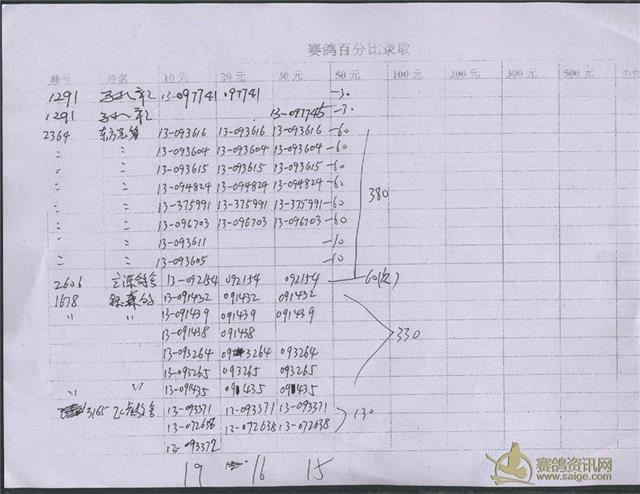 赛鸽百分比录取
棚号 姓名 10元 20元 30元 50元 100元 200元 300元 500元
1291 13-097741 097741 -30
1291 13-097745 -30
2364 13-093616 13-093616 13-093616 -60
〃 〃 13-093604 13-093604 13-093604 -60
〃 〃 13-093615 13-093615 13-093615 -60
〃 〃 13-094824 13-094824 13-094824 -60
〃 〃 13-375991 13-375991 13-375991 -60 380
〃 〃 13-096703 13-096703 13-096703 -60
〃 〃 13-093611 -10
〃 〃 13-093605 -10
2606 13-092154 092154 092154 60
1678 13-091432 091432 091432
〃 〃 13-091439 091439 091439
13-091438 091438 330
13-093264 093264 093264
13-093265 093265 093265
〃 〃 13-091435 091435 091435
3165 13-093371 13-093371 13-093371 130
13-072638 13-072638 13-072638
13-093372
19 16 15
赛鸽资讯网
www.saige.com